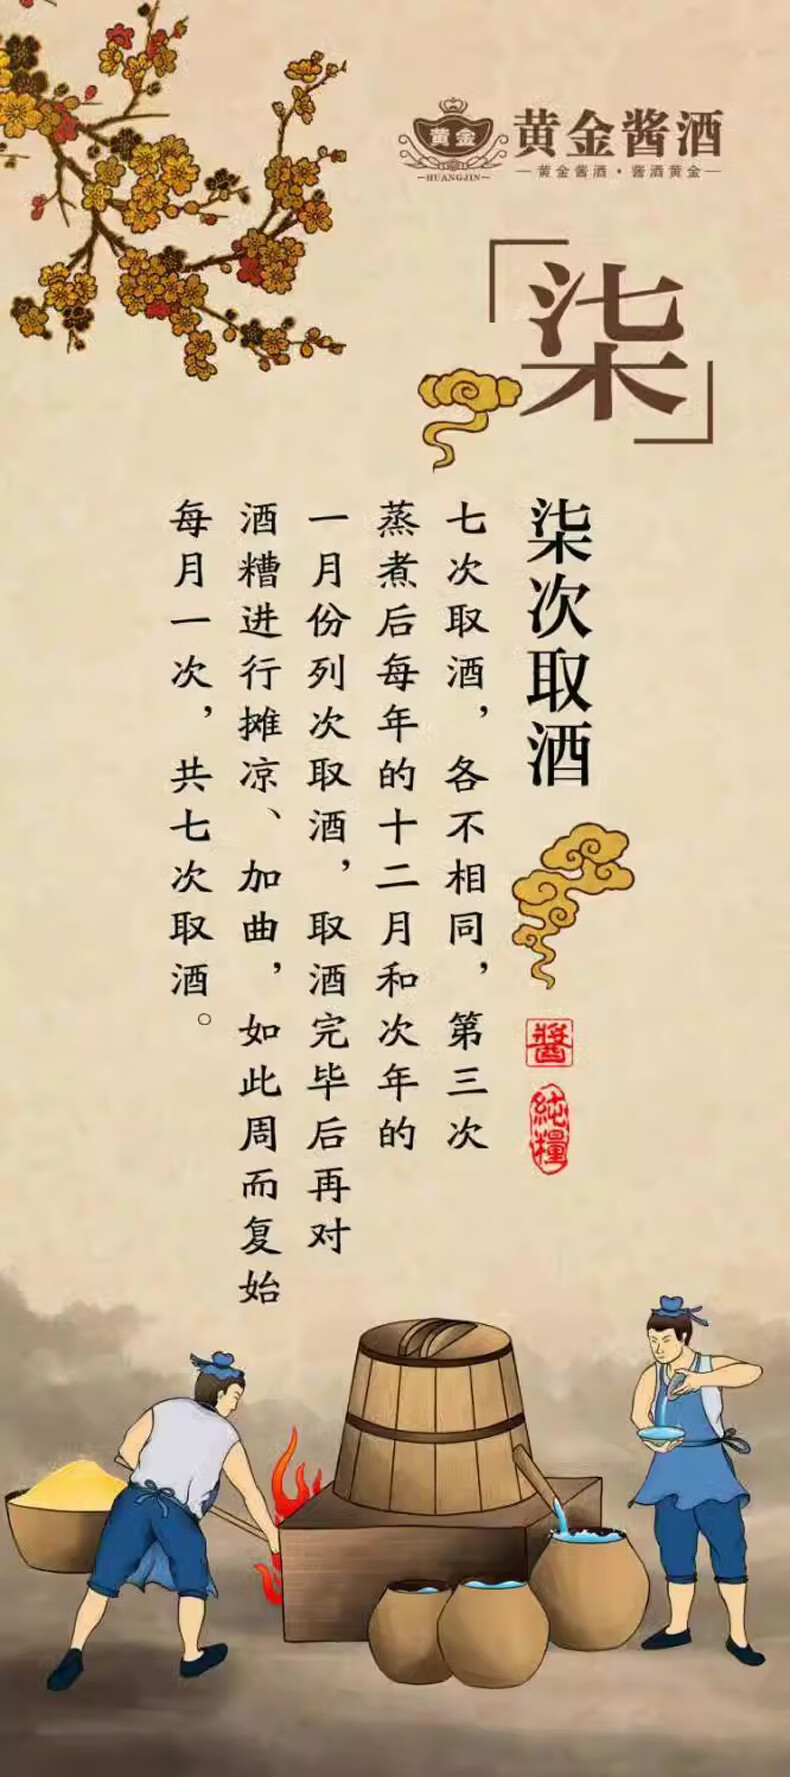 黄金
HUANGJIN
黄金酱酒
黄金酱酒·酱酒黄金
「柒」
柒次取酒
醬
純糧
七次取酒，各不相同，第三次
蒸煮后每年的十二月和次年的
一月份列次取酒，取酒完毕后再对
酒糟进行摊凉、加曲，如此周而复始
每月一次，共七次取酒。